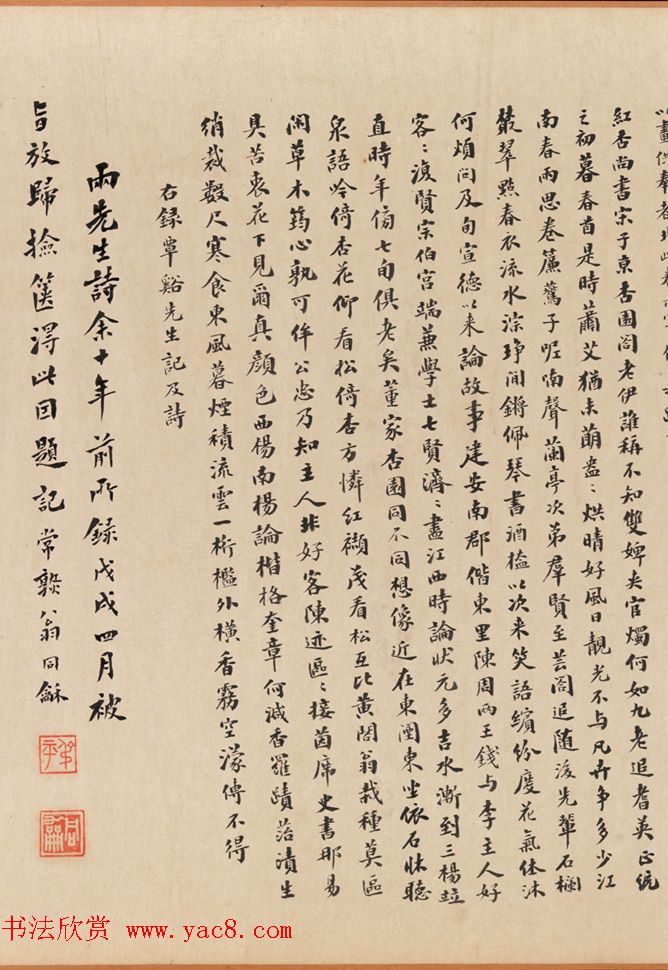 紅杏尚書宋子京杏園閣老伊誰稱不知雙婢夾官燭何如九老追耆英正統
之初暮春首是時蕭艾猶未萌盎〻烘晴好風日靚光不与凡卉争多少江
南春雨思卷簾鷰子呢喃聲蘭亭次第羣賢至芸閣追随後先輩石欄
叢翠點春衣流水淙琤間鏘佩琴書酒榼以次来笑語繽紛度花氣休沐
何煩問及旬宣德以来論故事建安南郡偕東里陳周兩王錢与李主人好
客〻復賢宗伯宫端兼學士七賢濟〻盡江西時論狀元多吉水漸到三楊竝
直時年俱七旬俱老矣董家杏園同不同想像近在東闉東坐依石牀聽
泉語吟倚杏花仰看松倚杏方憐紅襭茂看松互比黄閣翁栽種莫區
閑草木筠心孰可侔公忠乃知主人非好客陳迹區〻接茵席史書那易
具苦衷花下見爾真顔色西楊南楊論楷格奎章何減香羅蹟落漬生
綃裁數尺寒食東風暮煙積流雲一桁檻外橫香霧空濛傳不得
右録覃谿先生記及詩
兩先生詩余十年前所録戊戌四月被
旨放歸撿篋得此因題記常熟翁同龢
书法欣赏 www.yac8.com